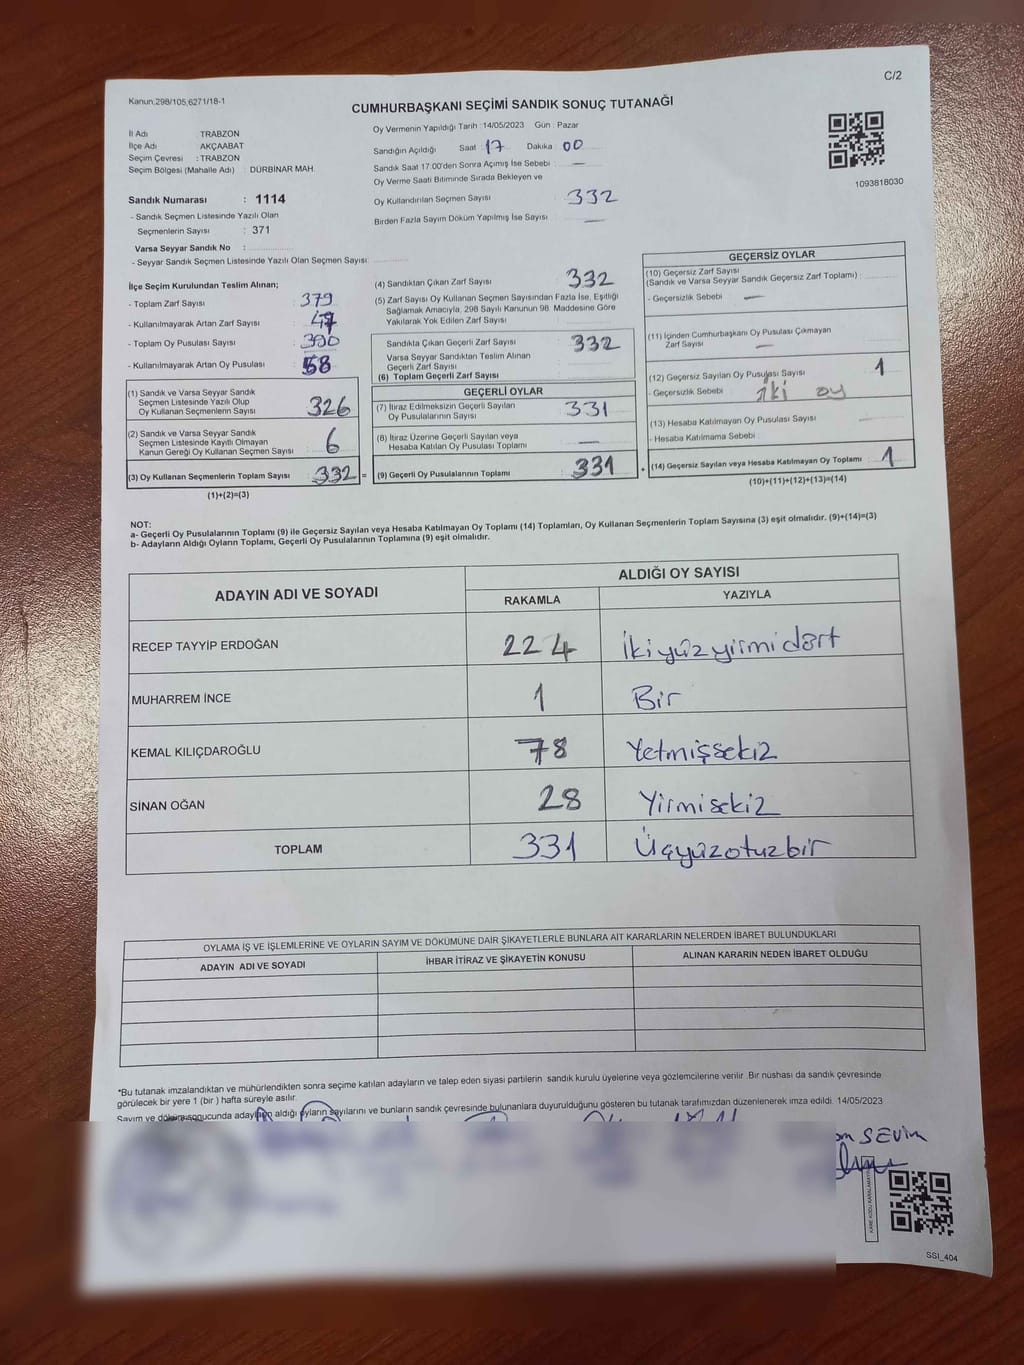 C/2
Kanun:298/105,6271/18-1
CUMHURBAŞKANI SEÇİMİ SANDIK SONUÇ TUTANAĞI
İl Adı TRABZON
İlçe Adı AKÇAABAT
Seçim Çevresi : TRABZON
Seçim Bölgesi (Mahalle Adı) : DÜRBİNAR MAH.
Oy Vermenin Yapıldığı Tarih :14/05/2023 Gün : Pazar
Sandığın Açıldığı Saat : 17 Dakika : 00
Sandık Saat 17:00'den Sonra Açımış İse Sebebi : —
Oy Verme Saati Bitiminde Sırada Bekleyen ve
Oy Kullandırılan Seçmen Sayısı 332
Birden Fazla Sayım Döküm Yapılmış İse Sayısı —
1093818030
Sandık Numarası : 1114
- Sandık Seçmen Listesinde Yazılı Olan
Seçmenlerin Sayısı : 371
Varsa Seyyar Sandık No :
- Seyyar Sandık Seçmen Listesinde Yazılı Olan Seçmen Sayısı:
İlçe Seçim Kurulundan Teslim Alınan;
- Toplam Zarf Sayısı : 379
- Kullanılmayarak Artan Zarf Sayısı : 47
- Toplam Oy Pusulası Sayısı : 390
- Kullanılmayarak Artan Oy Pusulası : 58
(1) Sandık ve Varsa Seyyar Sandık
Seçmen Listesinde Yazılı Olup
Oy Kullanan Seçmenlerin Sayısı 326
(2) Sandık ve Varsa Seyyar Sandık
Seçmen Listesinde Kayıtlı Olmayan
Kanun Gereği Oy Kullanan Seçmen Sayısı 6
(3) Oy Kullanan Seçmenlerin Toplam Sayısı 332 =
(1)+(2)=(3)
(4) Sandıktan Çıkan Zarf Sayısı 332
(5) Zarf Sayısı Oy Kullanan Seçmen Sayısından Fazla İse, Eşitliği
Sağlamak Amacıyla, 298 Sayılı Kanunun 98. Maddesine Göre
Yakılarak Yok Edilen Zarf Sayısı
Sandıkta Çıkan Geçerli Zarf Sayısı 332
Varsa Seyyar Sandıktan Teslim Alınan
Geçerli Zarf Sayısı
(6) Toplam Geçerli Zarf Sayısı
GEÇERLİ OYLAR
(7) İtiraz Edilmeksizin Geçerli Sayılan
Oy Pusulalarının Sayısı 331
(8) İtiraz Üzerine Geçerli Sayılan veya
Hesaba Katılan Oy Pusulası Toplamı —
(9) Geçerli Oy Pusulalarının Toplamı 331 +
GEÇERSİZ OYLAR
(10) Geçersiz Zarf Sayısı
(Sandık ve Varsa Seyyar Sandık Geçersiz Zarf Toplamı) :
- Geçersizlik Sebebi : —
(11) İçinden Cumhurbaşkanı Oy Pusulası Çıkmayan
Zarf Sayısı —
(12) Geçersiz Sayılan Oy Pusulası Sayısı 1
- Geçersizlik Sebebi : iki oy
(13) Hesaba Katılmayan Oy Pusulası Sayısı —
- Hesaba Katılmama Sebebi :
(14) Geçersiz Sayılan veya Hesaba Katılmayan Oy Toplamı : 1
(10)+(11)+(12)+(13)=(14)
NOT:
a- Geçerli Oy Pusulalarının Toplamı (9) ile Geçersiz Sayılan veya Hesaba Katılmayan Oy Toplamı (14) Toplamları, Oy Kullanan Seçmenlerin Toplam Sayısına (3) eşit olmalıdır. (9)+(14)=(3)
b- Adayların Aldığı Oyların Toplamı, Geçerli Oy Pusulalarının Toplamına (9) eşit olmalıdır.
ADAYIN ADI VE SOYADI ALDIĞI OY SAYISI
RAKAMLA YAZIYLA
RECEP TAYYİP ERDOĞAN 224 İkiyüzyirmidört
MUHARREM İNCE 1 Bir
KEMAL KILIÇDAROĞLU 78 Yetmişsekiz
SİNAN OĞAN 28 Yirmisekiz
TOPLAM 331 Üçyüzotuzbir
OYLAMA İŞ VE İŞLEMLERİNE VE OYLARIN SAYIM VE DÖKÜMÜNE DAİR ŞİKAYETLERLE BUNLARA AİT KARARLARIN NELERDEN İBARET BULUNDUKLARI
ADAYIN ADI VE SOYADI İHBAR İTİRAZ VE ŞİKAYETİN KONUSU ALINAN KARARIN NEDEN İBARET OLDUĞU
*Bu tutanak imzalandıktan ve mühürlendikten sonra seçime katılan adayların ve talep eden siyasi partilerin sandık kurulu üyelerine veya gözlemcilerine verilir .Bir nüshası da sandık çevresinde
görülecek bir yere 1 (bir ) hafta süreyle asılır.
Sayım ve döküm sonucunda adayların aldığı oyların sayılarını ve bunların sandık çevresinde bulunanlara duyurulduğunu gösteren bu tutanak tarafımızdan düzenlenerek imza edildi. 14/05/2023
SEVİM
SSI_404